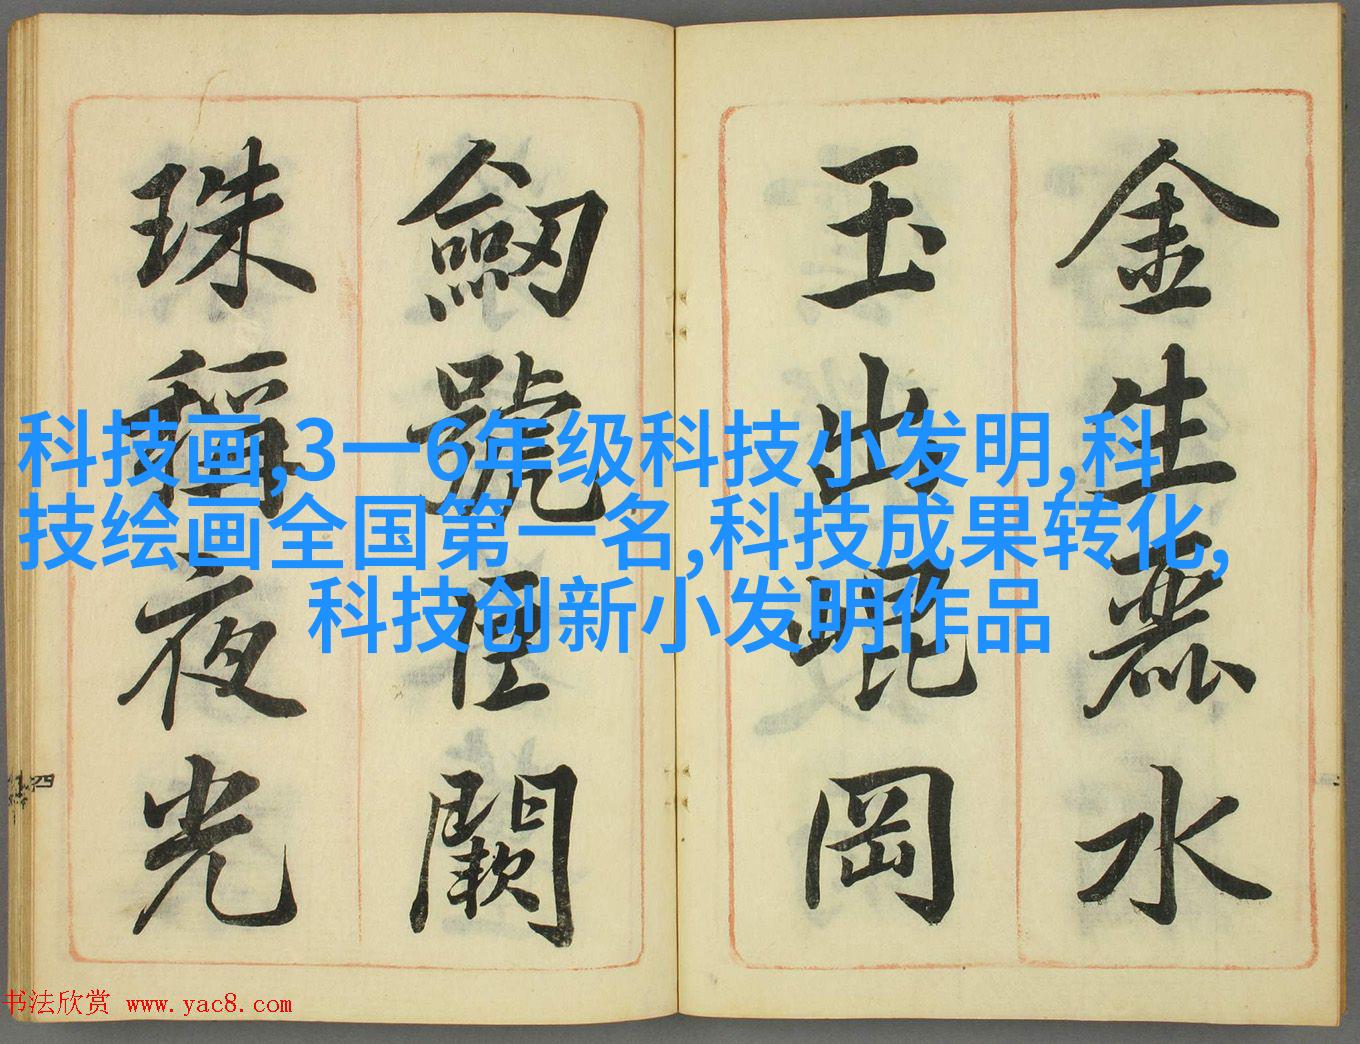 金生麗水
玉出崐岡
劒號巨闕
珠稱夜光
科技画,3一6年级科技小发明,科
技绘画全国第一名,科技成果转化,
科技创新小发明作品
书法欣赏 www.yac8.com